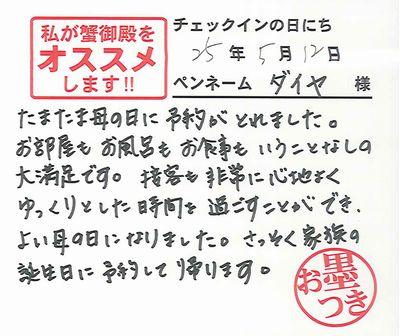 私が蟹御殿を
オススメ
します!!
チェックインの日にち
25年5月12日
ペンネーム ダイヤ 様
たまたま母の日に予約がとれました。
お部屋もお風呂もお食事もいうことなしの
大満足です。接客も非常に心地よく
ゆっくりとした時間を過ごすことができ、
よい母の日になりました。さっそく家族の
誕生日に予約して帰ります。
お墨つき